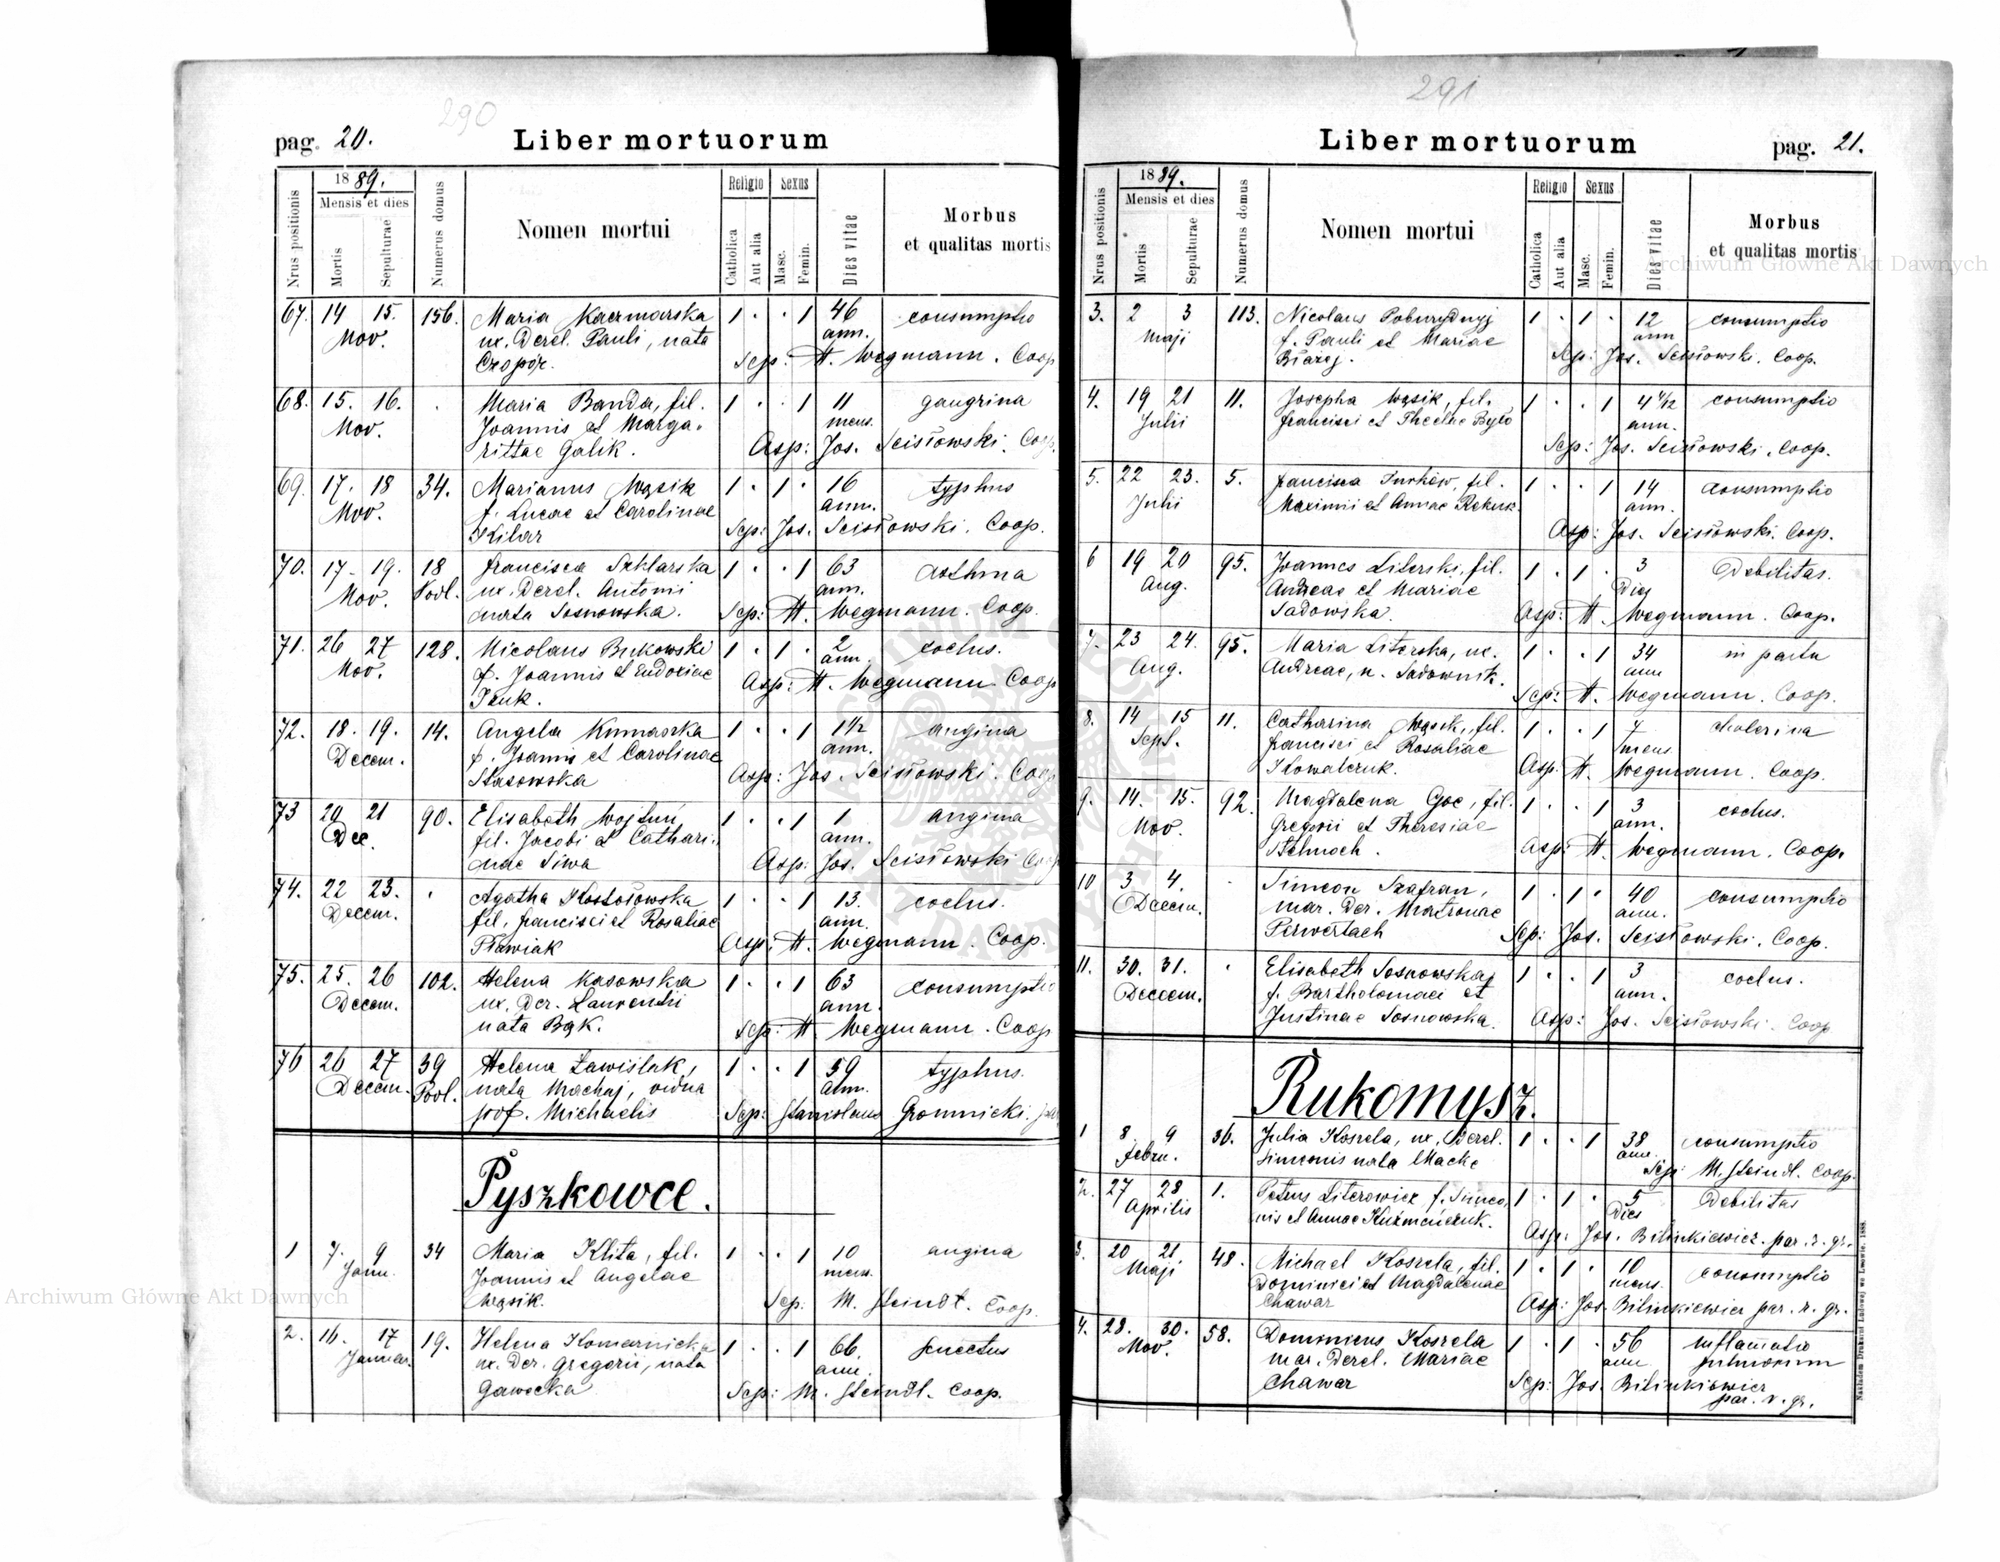 290
pag. 20.
Liber mortuorum
Nrus positionis
1889.
Mensis et dies
Mortis
Sepulturae
Numerus domus
Nomen mortui
Religio
Catholica
Aut alia
Sexus
Masc.
Femin.
Dies vitae
Morbus
et qualitas mortis
67. 14 15. 156. Maria Kaczmarska 1 · · 1 46 consumptio
Nov. ux. Derel. Pauli, nata ann.
Czopór. Sep: H. Wegmann. Coop
68. 15. 16. · Maria Banda, fil. 1 · · 1 11 gangrina
Nov. Joannis et Marga- mens.
rittae Galik. Asp: Jos. Scisłowski. Coop.
69. 17. 18 34. Marianus Wąsik 1 · 1 · 16 typhus
Nov. f. Lucae et Carolinae ann.
Kilar Sep: Jos. Scisłowski. Coop.
70. 17. 19. 18 Francisca Szklarska 1 · · 1 63 asthma
Nov. Podl. ux. Derel. Antonii ann.
nata Sosnowska. Sep: H. Wegmann. Coop.
71. 26 27 128. Nicolaus Bukowski 1 · 1 · 2 coclus.
Nov. f. Joannis et Eudoxiae ann.
Asp: H. Wegmann Coop
72. 18. 19. 14. Angela 1 · · 1 1½ angina
Decem. f. Joannis et Carolinae ann.
Stasowska Asp: Jos. Scisłowski. Coop
73 20 21 90. Elisabeth Wojtuń 1 · · 1 1 angina
Dec. fil. Jacobi et Cathari- ann.
nae Siwa Asp: Jos. Scisłowski Coop
74. 22 23. · Agatha Kostołowska 1 · · 1 13. coclus.
Decem. fil. Francisci et Rosaliae ann.
Pławiak Asp: H. Wegmann. Coop.
75. 25. 26 102. Helena Kasowska 1 · · 1 63 consumptio
Decem. ux. Der. Laurentii ann.
nata Bąk. Sep: H. Wegmann. Coop
76 26 27 39 Helena Zawiślak, 1 · · 1 59 typhus.
Decem. Podl. nata Machaj, vidua ann.
prof. Michaelis Sep: Stanislaus Gromnicki.
Pyszkowce.
1 7. 9 34 Maria Klita, fil. 1 · · 1 10 angina
Janu. Joannis et Angelae mens.
Wąsik. Sep. M. Steindl. Coop.
2. 16. 17 19. Helena Komarnicka 1 · · 1 66. senectus
Januar. ux. Der. Gregorii, nata ann.
Gawecka Sep: M. Steindl. Coop.
291
Liber mortuorum
pag. 21.
Nrus positionis
1889.
Mensis et dies
Mortis
Sepulturae
Numerus domus
Nomen mortui
Religio
Catholica
Aut alia
Sexus
Masc.
Femin.
Dies vitae
Morbus
et qualitas mortis
3. 2 3 113. Nicolaus Poburydnyj 1 · 1 · 12 consumptio
Maji f. Pauli et Mariae ann
Białej. Sep: Jos. Scisłowski. Coop.
4. 19 21 11. Josepha Wąsik, fil. 1 · · 1 4 ½ consumptio
Julii Francisci et Theclae Było ann.
Sep: Jos. Scisłowski. Coop.
5. 22 23. 5. Francisca Turków, fil. 1 · · 1 14 consumptio
Julii Maximii et Annae Rekuk ann.
Asp: Jos. Scisłowski. Coop.
6 19 20 95. Joannes Literski, fil. 1 · 1 · 3 Debilitas.
Aug. Andreae et Mariae Diej
Sadowska. Asp: H. Wegmann. Coop.
7. 23 24. 95. Maria Literska, ux. 1 · · 1 34 in partu
Aug. Andreae, n. Sadownik. ann
Sep: H. Wegmann. Coop.
8. 14 15 11. Catharina Wąsik, fil. 1 · · 1 7 cholerina
Sept. Francisci et Rosaliae mens
Kowalczuk. Asp: H. Wegmann. Coop.
9. 14. 15. 92. Magdalena Goc, fil. 1 · · 1 3 coclus.
Nov. Gregorii et Theresiae ann.
Stelmoch. Asp: H. Wegmann. Coop.
10 3 4. · Simeon Szafran, 1 · 1 · 40 consumptio
Decem. mar. Der. Matronae ann.
Perwertach Sep: Jos. Scisłowski. Coop.
11. 30. 31. · Elisabeth Sosnowska, 1 · · 1 3 coclus.
Decem. f. Bartholomaei et ann.
Justinae Sosnowska. Asp: Jos. Scisłowski. Coop
Rukomysz.
1 8. 9 36. Julia Koszela, ux. Derel. 1 · · 1 38 consumptio
Febru. Simeonis nata Macke ann.
Sep: M. Steindl. Coop.
2. 27 28 1. Petrus Literowicz f. Simeo- 1 · 1 · 5 Debilitas
Aprilis nis et Annae Kuźmeńczuk. Dies
Asp: Jos. Bilinkiewicz. par. r. gr.
3. 20 21 48. Michael Koszela, fil. 1 · 1 · 10 consumptio
Maji Dominici et Magdalenae mens.
Chawar Asp: Jos. Bilinkiewicz par. r. gr.
4. 28. 30. 58. Dominicus Koszela 1 · 1 · 56 inflamatio
Nov. mar. Derel. Mariae ann. pulmonum
Chawar Sep: Jos. Bilinkiewicz
par. r. gr.
Nakładem Drukarni Ludowej we Lwowie. 1888.
Archiwum Główne Akt Dawnych
Archiwum Główne Akt Dawnych